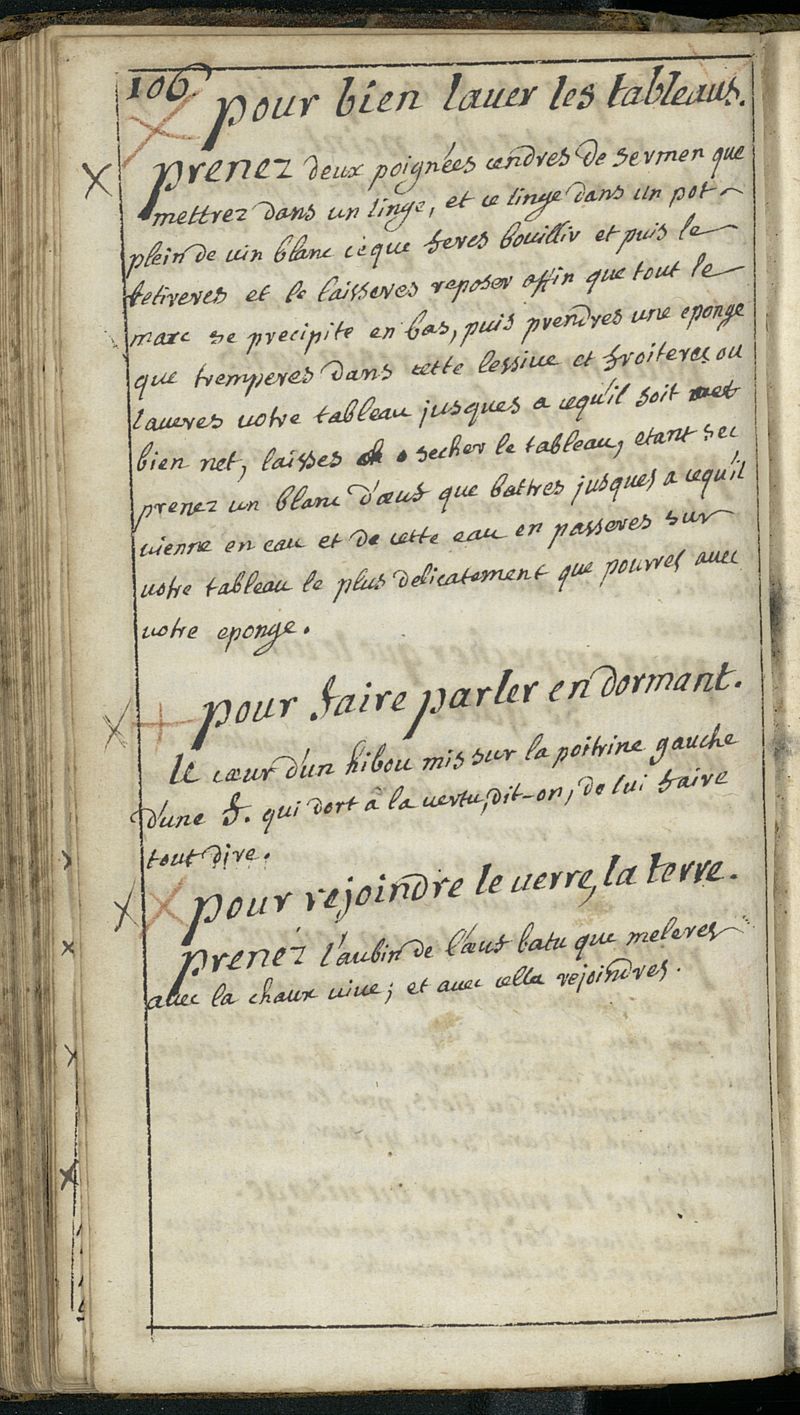 106
pour bien laver les tableaus.
prenez deux poignées cendres de sermen que
mettrez dans un linge, et ce linge dans un pot
plein de vin blanc ceque feres bouillir et puis le
retireres et le laisseres reposer affin que tout le
marc se precipite en bas, puis prendres une eponge
que tremperes dans cette lessive et froiteres ou
laveres votre tableau jusques a cequ'il soit
bien net, laisses secher le tableau, etant sec
prenez un blanc d'œuf que battres jusques a cequ'il
vienne en eau et de cette eau en passeres sur
votre tableau le plus delicatement que pourres avec
votre eponge.
pour faire parler en dormant.
le cœur d'un hibou mis sur la poitrine gauche
d'une f. qui dort à la vertu, dit-on, de lui faire
tout dire.
pour rejoindre le verre, la terre.
prenez l'aubin de l'œuf batu que meleres
avec la chaux vive; et avec cella rejoindres.